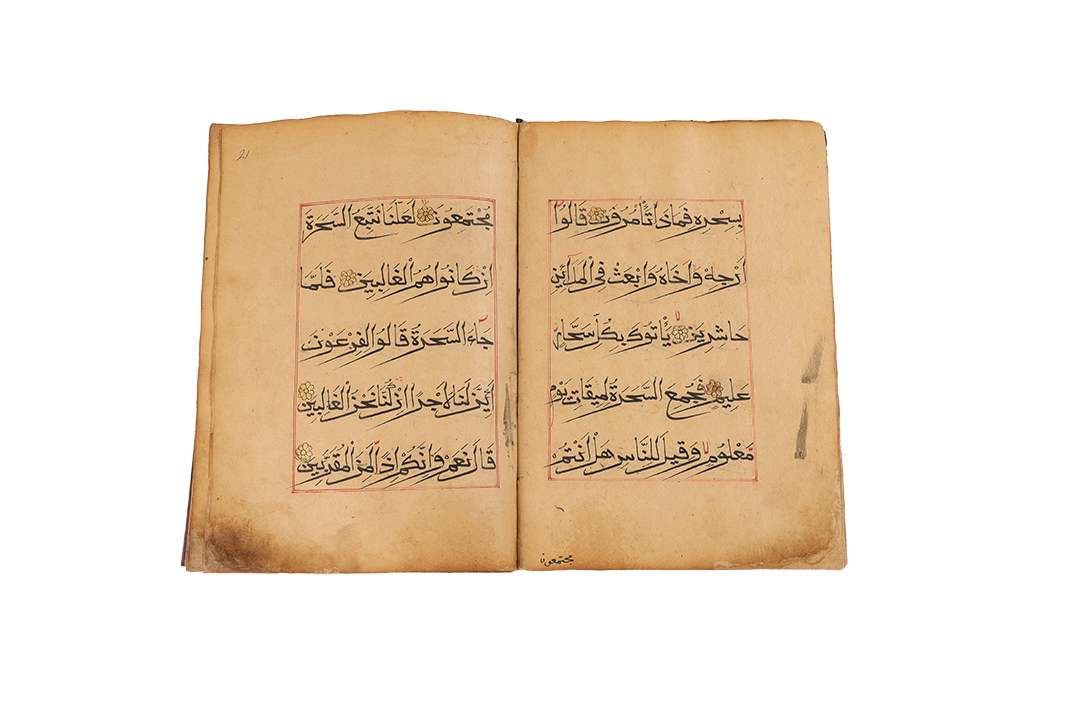 بِسِحْرِهِ فَمَاذَا تَأْمُرُونَ قَالُوا
اَرْجِهْ وَاَخَاهُ وَابْعَثْ فِى الْمَدَآئِنِ
حَاشِرِينَ يَأْتُوكَ بِكُلِّ سَحَّارٍ
عَلِيمٍ فَجُمِعَ السَّحَرَةُ لِمِيقَاتِ يَوْمٍ
مَعْلُومٍ وَقِيلَ لِلنَّاسِ هَلْ اَنْتُمْ
مجتمعون
21
مُجْتَمِعُونَ لَعَلَّنَا نَتَّبِعُ السَّحَرَةَ
اِنْ كَانُوا هُمُ الْغَالِبِينَ فَلَمَّا
جَآءَ السَّحَرَةُ قَالُوا لِفِرْعَوْنَ
اَئِنَّ لَنَا لَاَجْرًا اِنْ كُنَّا نَحْنُ الْغَالِبِينَ
قَالَ نَعَمْ وَاِنَّكُمْ اِذًا لَمِنَ الْمُقَرَّبِينَ